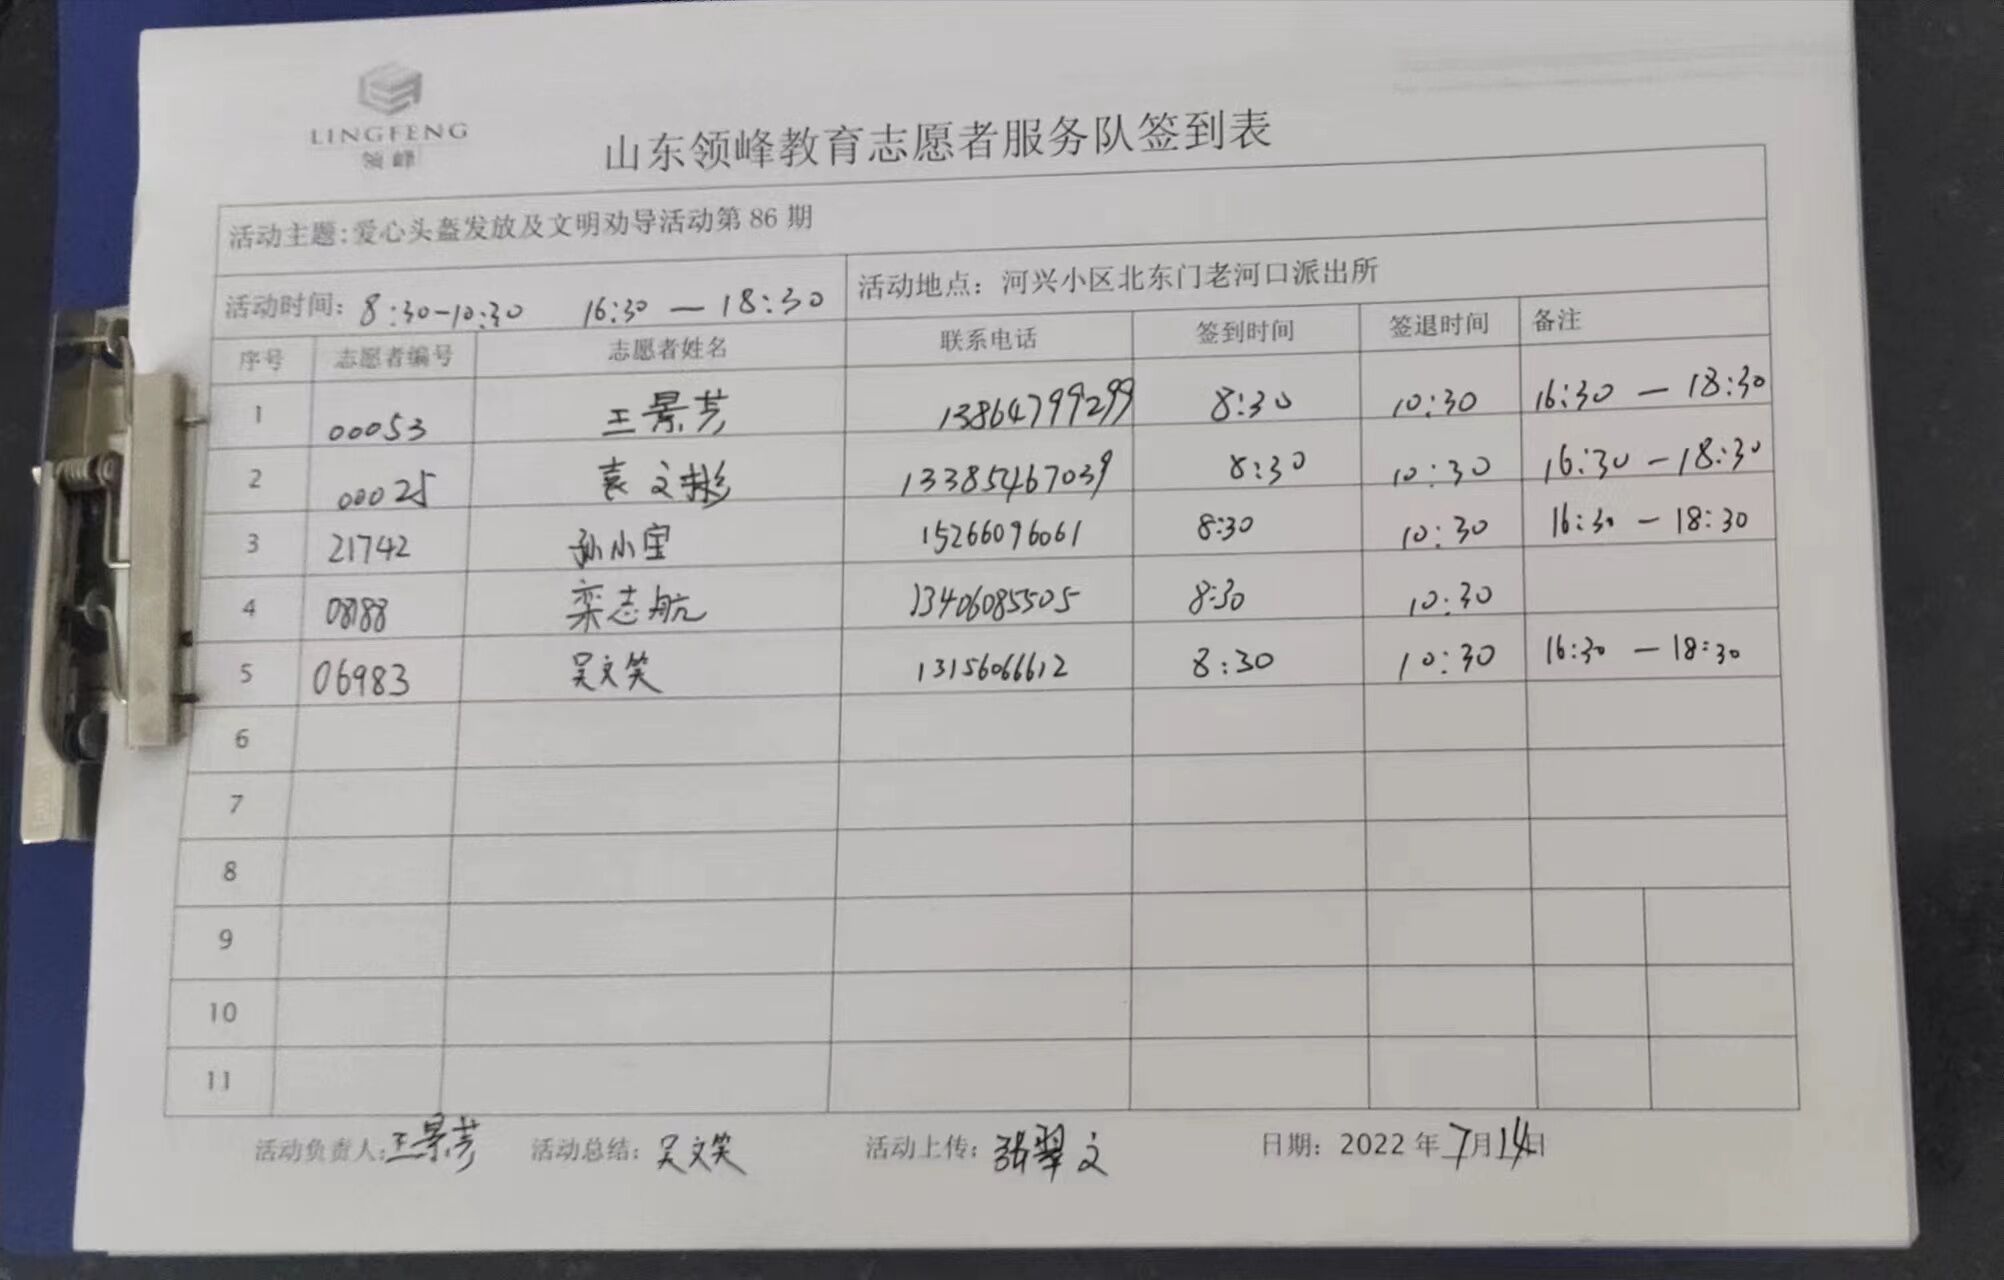 LINGFENG
领峰
山东领峰教育志愿者服务队签到表
活动主题:爱心头盔发放及文明劝导活动第 86 期
活动时间: 8:30-10:30 16:30 — 18:30 活动地点: 河兴小区北东门老河口派出所
序号 志愿者编号 志愿者姓名 联系电话 签到时间 签退时间 备注
1 00053 王景芳 13864799299 8:30 10:30 16:30 — 18:30
2 00025 袁文彬 13385467039 8:30 10:30 16:30 - 18:30
3 21742 孙小宝 15266096061 8:30 10:30 16:30 - 18:30
4 08188 栾志航 13406085505 8:30 10:30
5 06983 吴文笑 13156066612 8:30 10:30 16:30 - 18:30
6
7
8
9
10
11
活动负责人:王景芳 活动总结: 吴文笑 活动上传: 张翠文 日期: 2022 年 7月14日